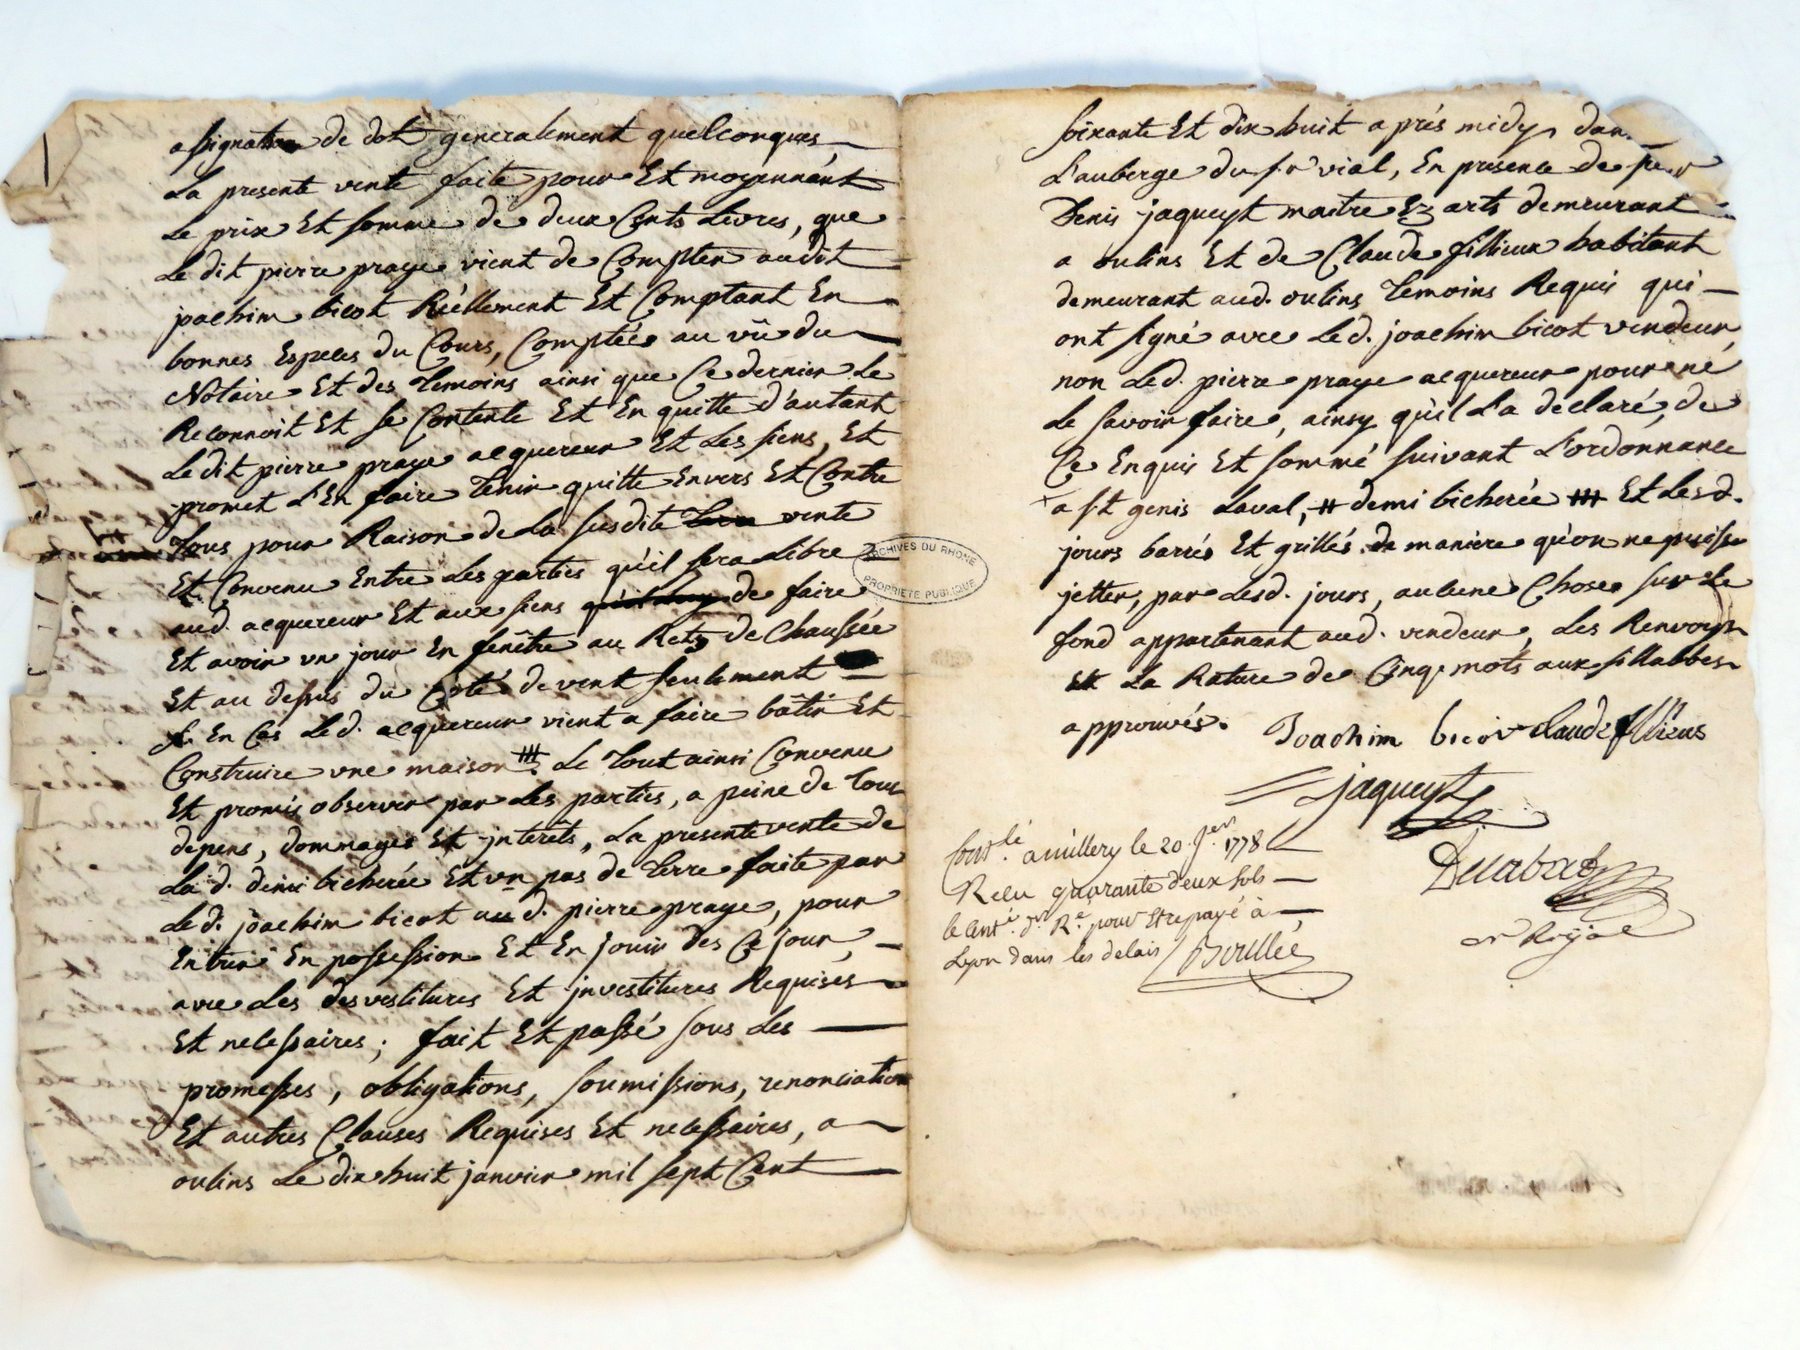 assignation de dot generalement quelconques,
La presente vente faite pour Et moyennant
Le prix Et somme de deux Cents Livres, que
Le dit pierre praye vient de Compter audit
joachim bicot Réellement Et Comptant En
bonnes Especes du Cours, Comptée au vû du
Notaire Et des Temoins ainsi que Ce dernier Le
Reconnoit Et se Contente Et En quitte d'autant
Ledit pierre praye acquereur Et Les siens, Et
promet L'En faire Tenir quitte Envers Et Contre
Tous pour Raison de La susdite vente
Et Convenu Entre Les parties qu'il sera Libre
aud. acquereur Et aux siens de faire
Et avoir un jour En fenêtre au Retz de Chaussée
Et au dessus du Coté de vent seulement
En Cas Led. acquereur vient a faire bâtir Et
Construire une maison ⧻ Le Tout ainsi Convenu
Et promis observer par Les parties, a peine de Tous
depens, dommages Et jnterêts, La presente vente de
La d. demi bicherée Et un pas de Terre faite par
Led. joachim bicot aud. pierre praye, pour
Entrer En possession Et En jouir des Ce jour,
avec Les desvestitures Et jnvestitures Requises
Et necessaires; fait Et passé sous Les
promesses, obligations, soumissions, renonciation
Et autres Clauses Requises Et necessaires, a
oulins Le dix huit janvier mil sept Cent
soixante Et dix huit aprés midy dans
L'auberge du sr vial, En presence de
Denis jaqueyt maitre Ez arts demeurant
a oulins Et de Claude fillieux habitant
demeurant aud. oulins Temoins Requis qui
ont signé avec Led. joachim bicot vendeur,
non Led. pierre praye acquereur pour né
Le savoir faire, ainsy qu'il L'a declaré, de
Ce Enquis Et sommé suivant L'ordonnance
a st genis Laval, ⧺ demi bicherée ⧻ Et Lesd.
jours barrés Et grillés de maniere qu'on ne puisse
jetter, par Lesd. jours, aucune Chose sur Le
fond appartenant aud. vendeur, Les Renvoys
Et La Rature de Cinq mots aux sillabbes
approuvés. Joachim bicot Claude fillieux
jaqueyt
Contlé. a millery le 20. jer. 1778
Recu quarante deux sols
le Centé. dr Re. pour Etre payé à
Lyon dans les delais Boullée
nre Royal
ARCHIVES DU RHONE
PROPRIETE PUBLIQUE